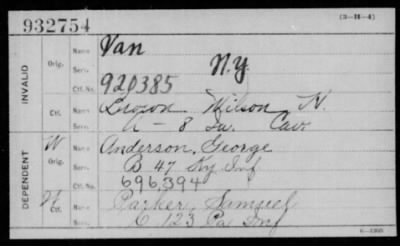 932754 (3-H-4)
INVALID Orig. Name Van
Serv. N.Y.
Ctf. No. 920385
Ctf. Name Brown Wilson N.
Serv. A-8 Cav
DEPENDENT W Orig. Name Anderson, George
Serv. B 47 Ky Inf
Ctf. No. 696,394
Ctf. Name Parker, Samuel
Serv. C 123 Pa Inf